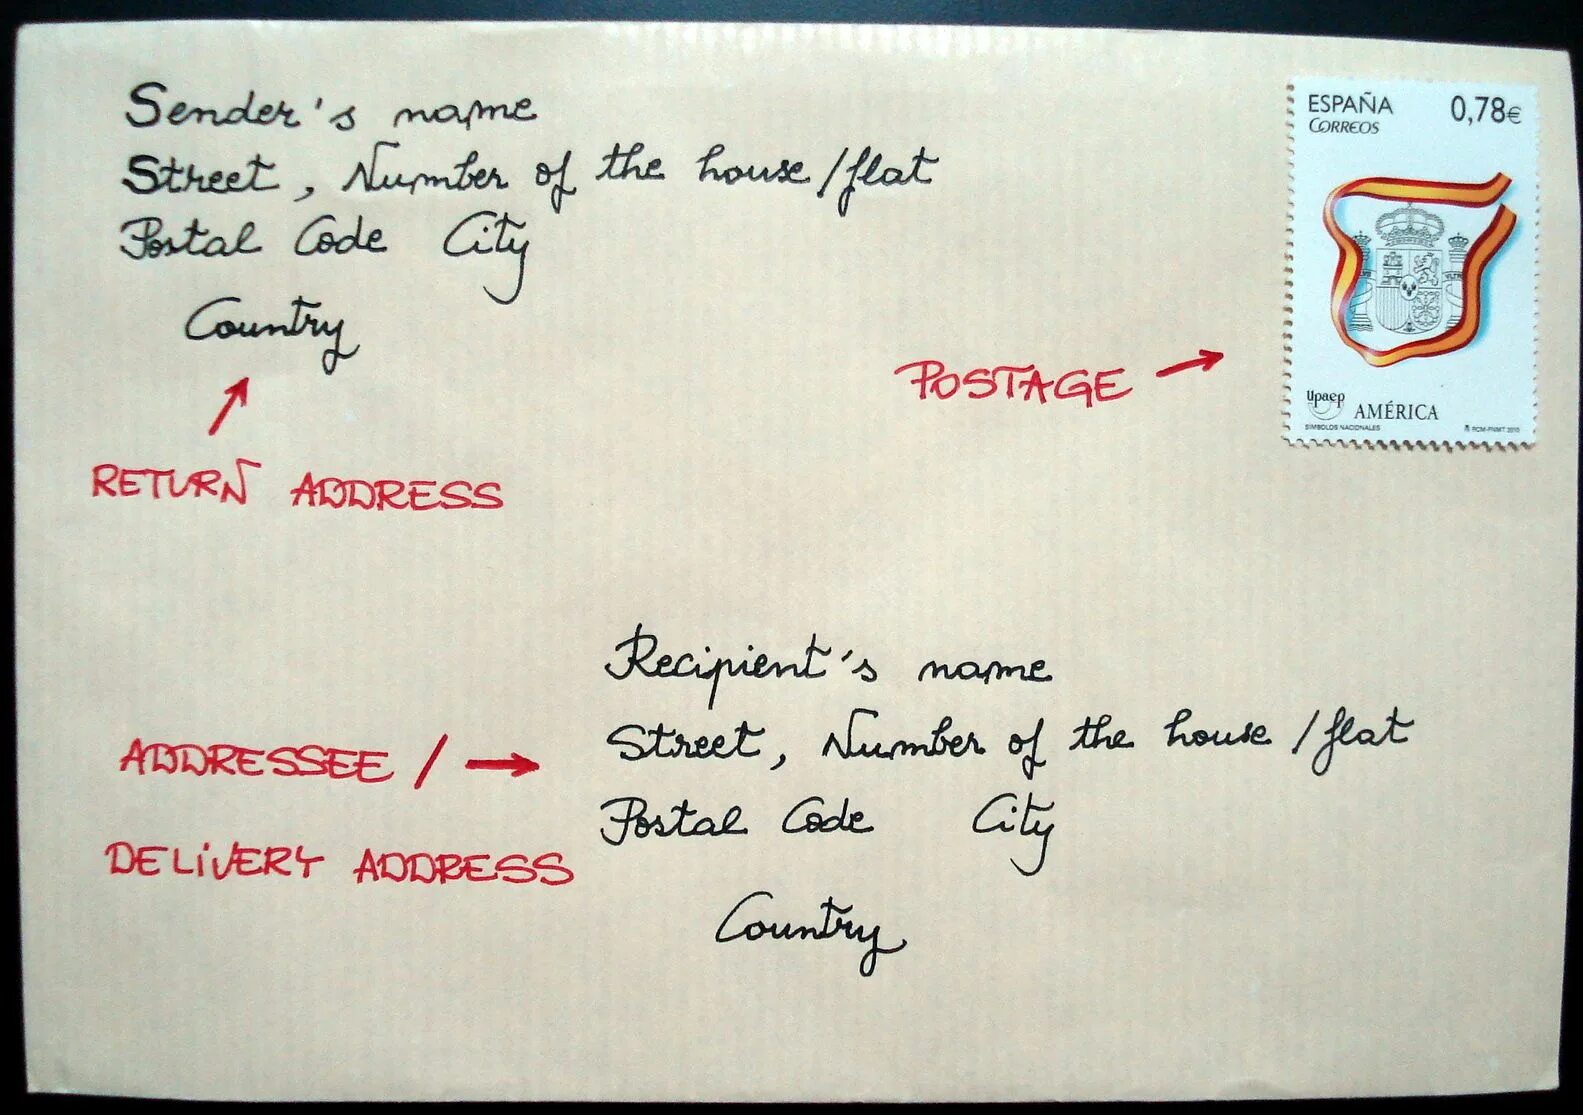 Sender's name
Street, Number of the house/flat
Postal Code City
Country
RETURN ADDRESS
ESPAÑA 0,78€
CORREOS
POSTAGE →
upaep AMÉRICA
SÍMBOLOS NACIONALES RCM-FNMT 2010
Recipient's name
Street, Number of the house/flat
Postal Code City
Country
ADDRESSEE / →
DELIVERY ADDRESS